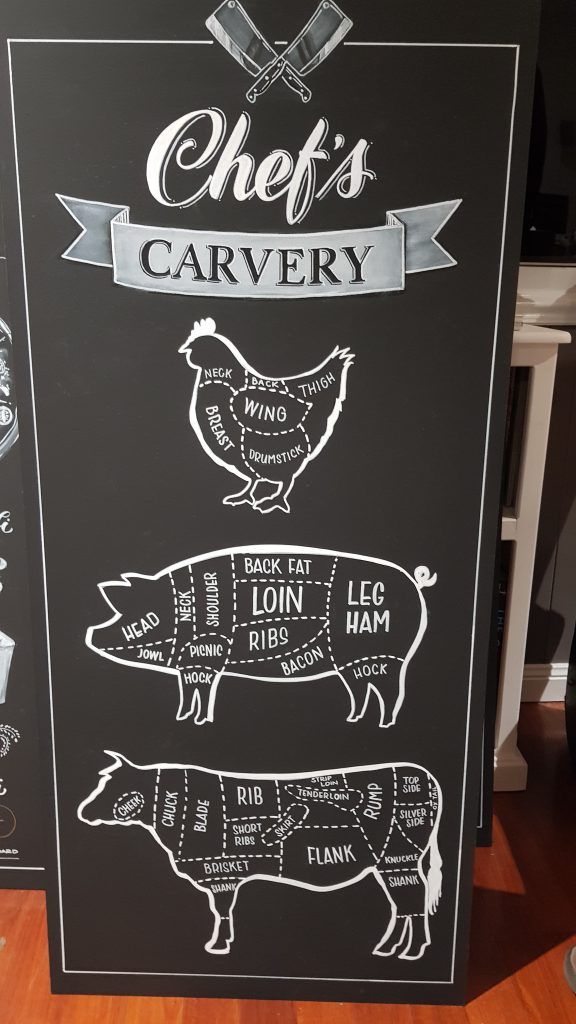 Chef's
CARVERY
NECK
BACK
THIGH
WING
BREAST
DRUMSTICK
BACK FAT
HEAD
NECK
SHOULDER
LOIN
LEG
HAM
JOWL
PICNIC
RIBS
BACON
HOCK
HOCK
CHEEK
CHUCK
BLADE
RIB
STRIP
LOIN
TENDERLOIN
RUMP
TOP
SIDE
OX TAIL
SHORT
RIBS
SKIRT
SILVER
SIDE
BRISKET
FLANK
KNUCKLE
SHANK
SHANK